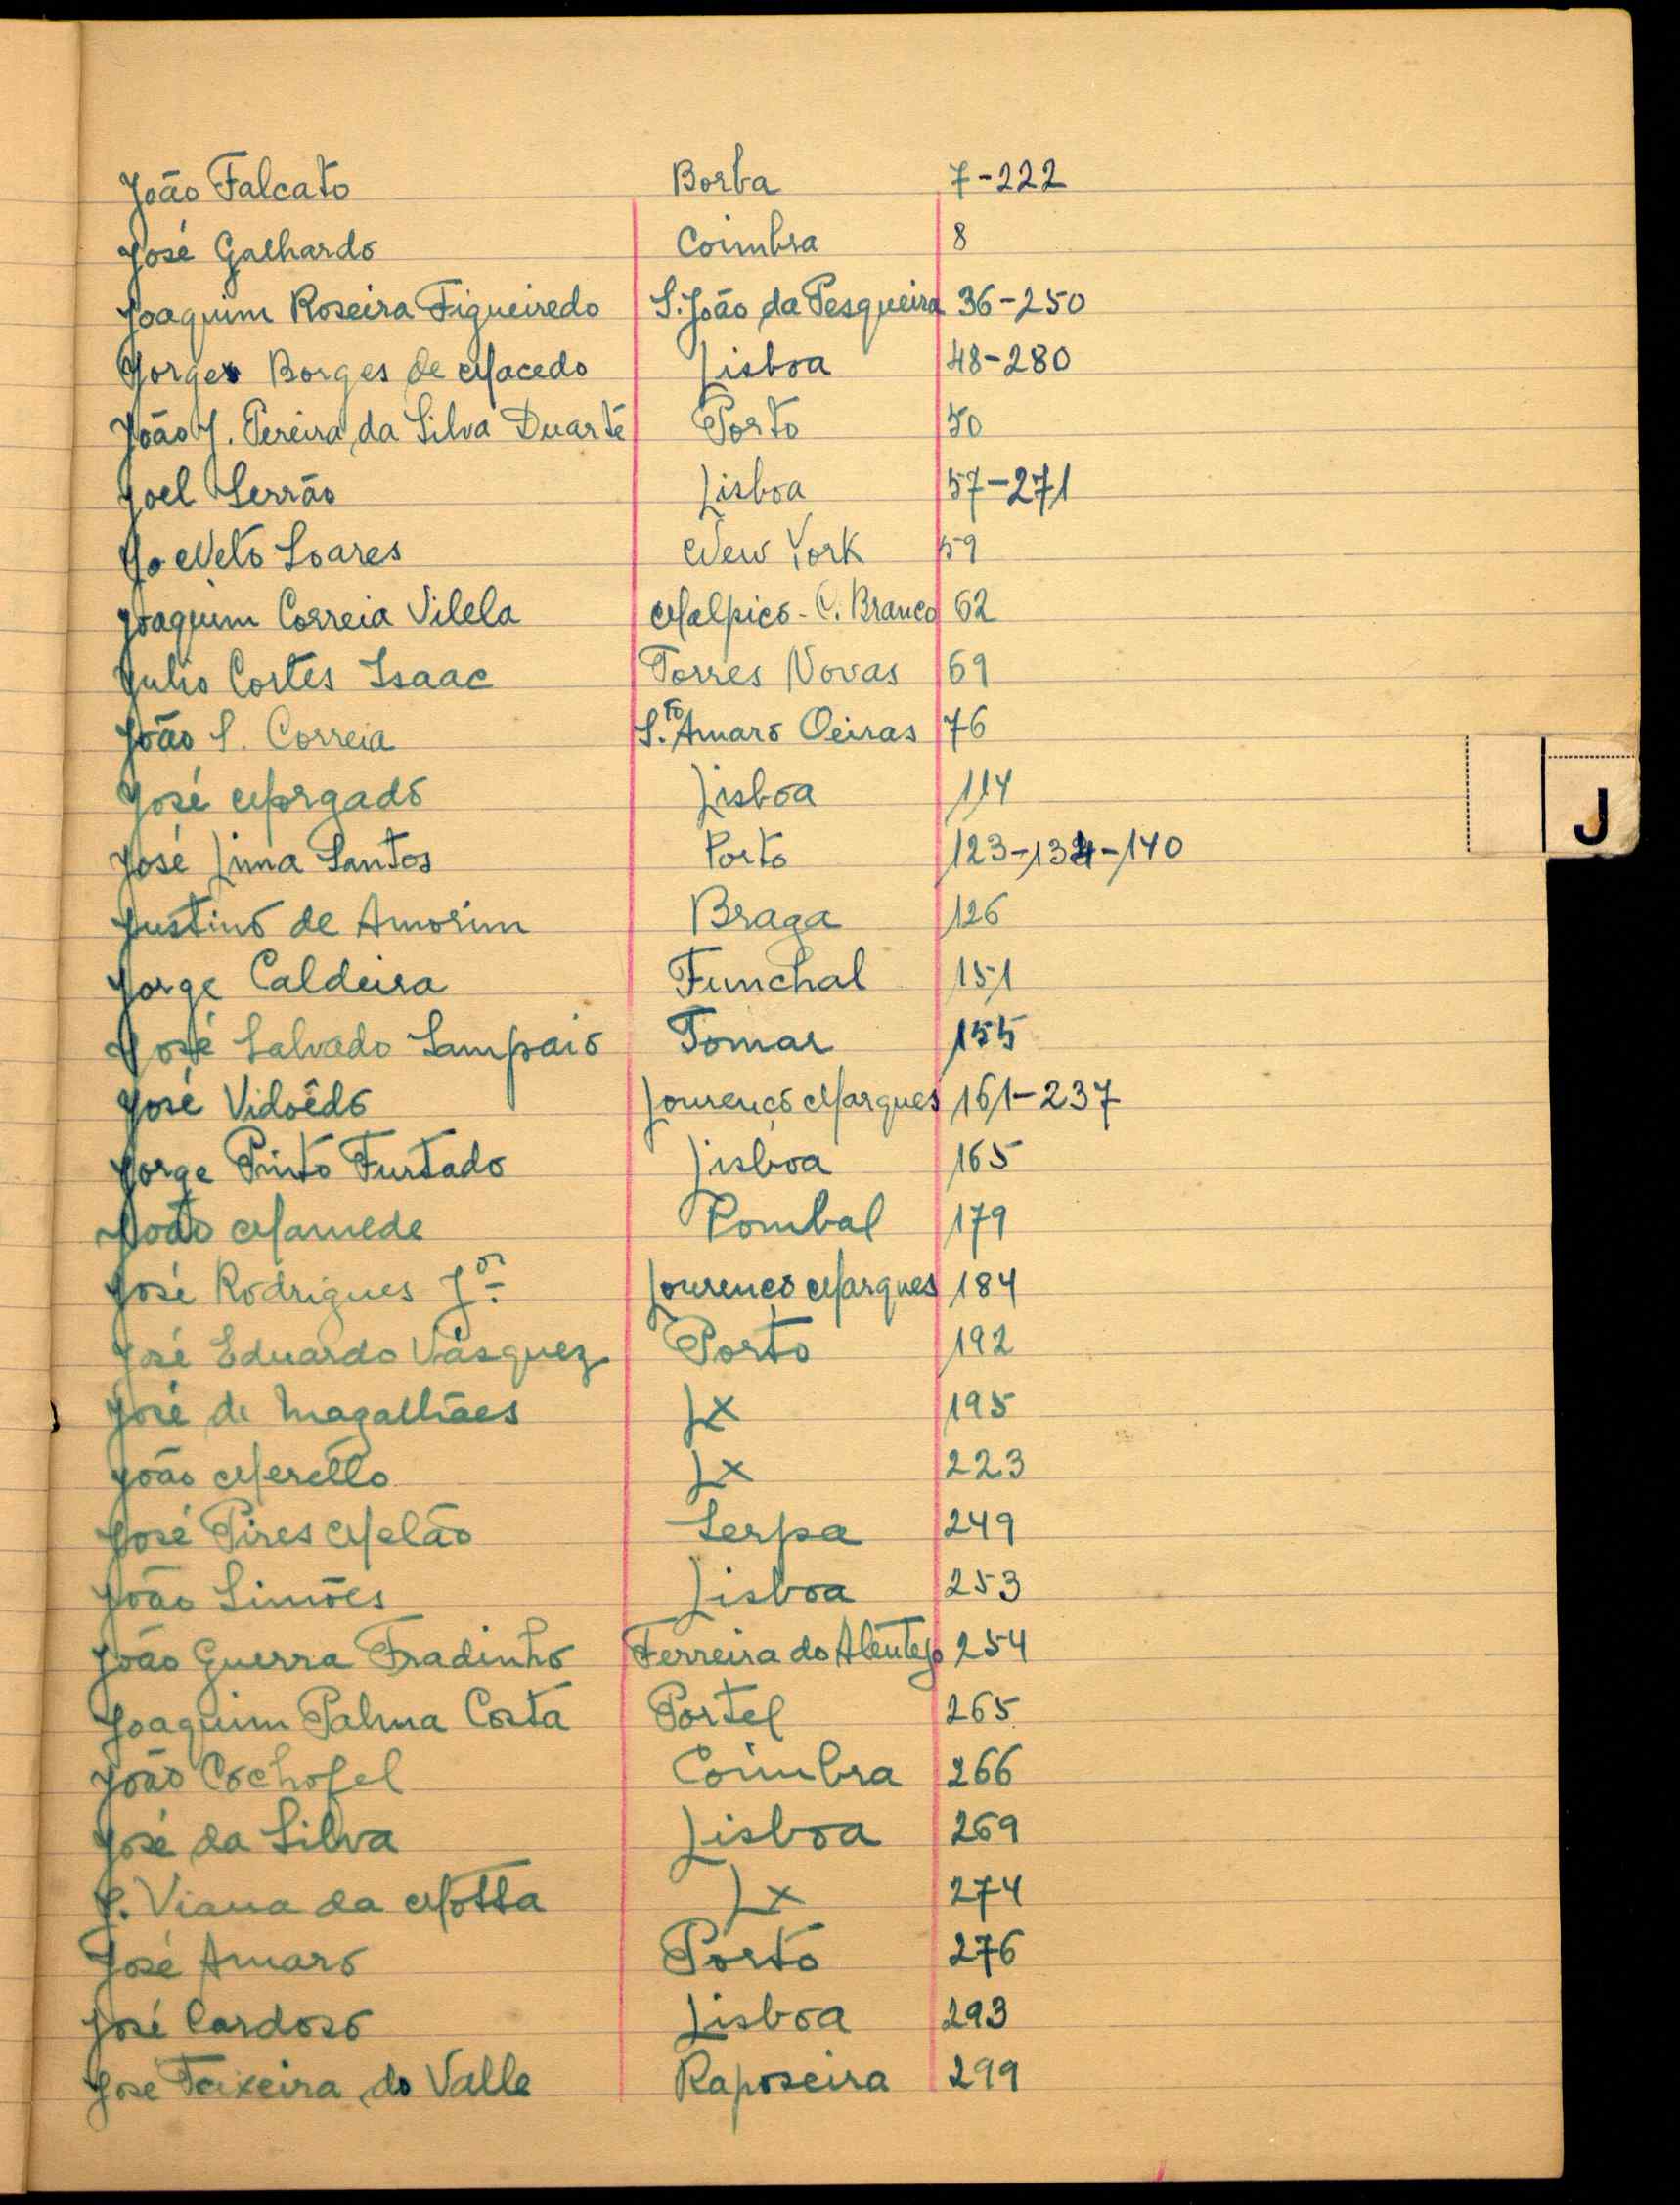 João Falcato Borba 7-222
José Galhardo Coimbra 8
Joaquim Roseira Figueiredo S. João da Pesqueira 36-250
Jorge Borges de Macedo Lisboa 48-280
João J. Pereira da Silva Duarte Porto 50
Joel Serrão Lisboa 57-271
Jo Neto Soares New York 59
Joaquim Correia Vilela Malpico - C. Branco 62
Julio Cortes Isaac Torres Novas 69
João S. Correia S.to Amaro Oeiras 76
José Morgado Lisboa 114
José Lima Santos Porto 123-134-140
J
Justino de Amorim Braga 126
Jorge Caldeira Funchal 151
José Salvado Sampaio Tomar 155
José Vidoêdo Lourenço Marques 161-237
Jorge Pinto Furtado Lisboa 165
João Mamede Pombal 179
José Rodrigues Jor Lourenço Marques 184
José Eduardo Vasquez Porto 192
José de Magalhães Lx 195
João Merello Lx 223
José Pires Melão Serpa 249
João Simões Lisboa 253
João Guerra Fradinho Ferreira do Alentejo 254
Joaquim Palma Costa Portel 265
João Cochofel Coimbra 266
José da Silva Lisboa 269
J. Viana da Motta Lx 274
José Amaro Porto 276
José Cardoso Lisboa 293
José Teixeira do Valle Raposeira 299